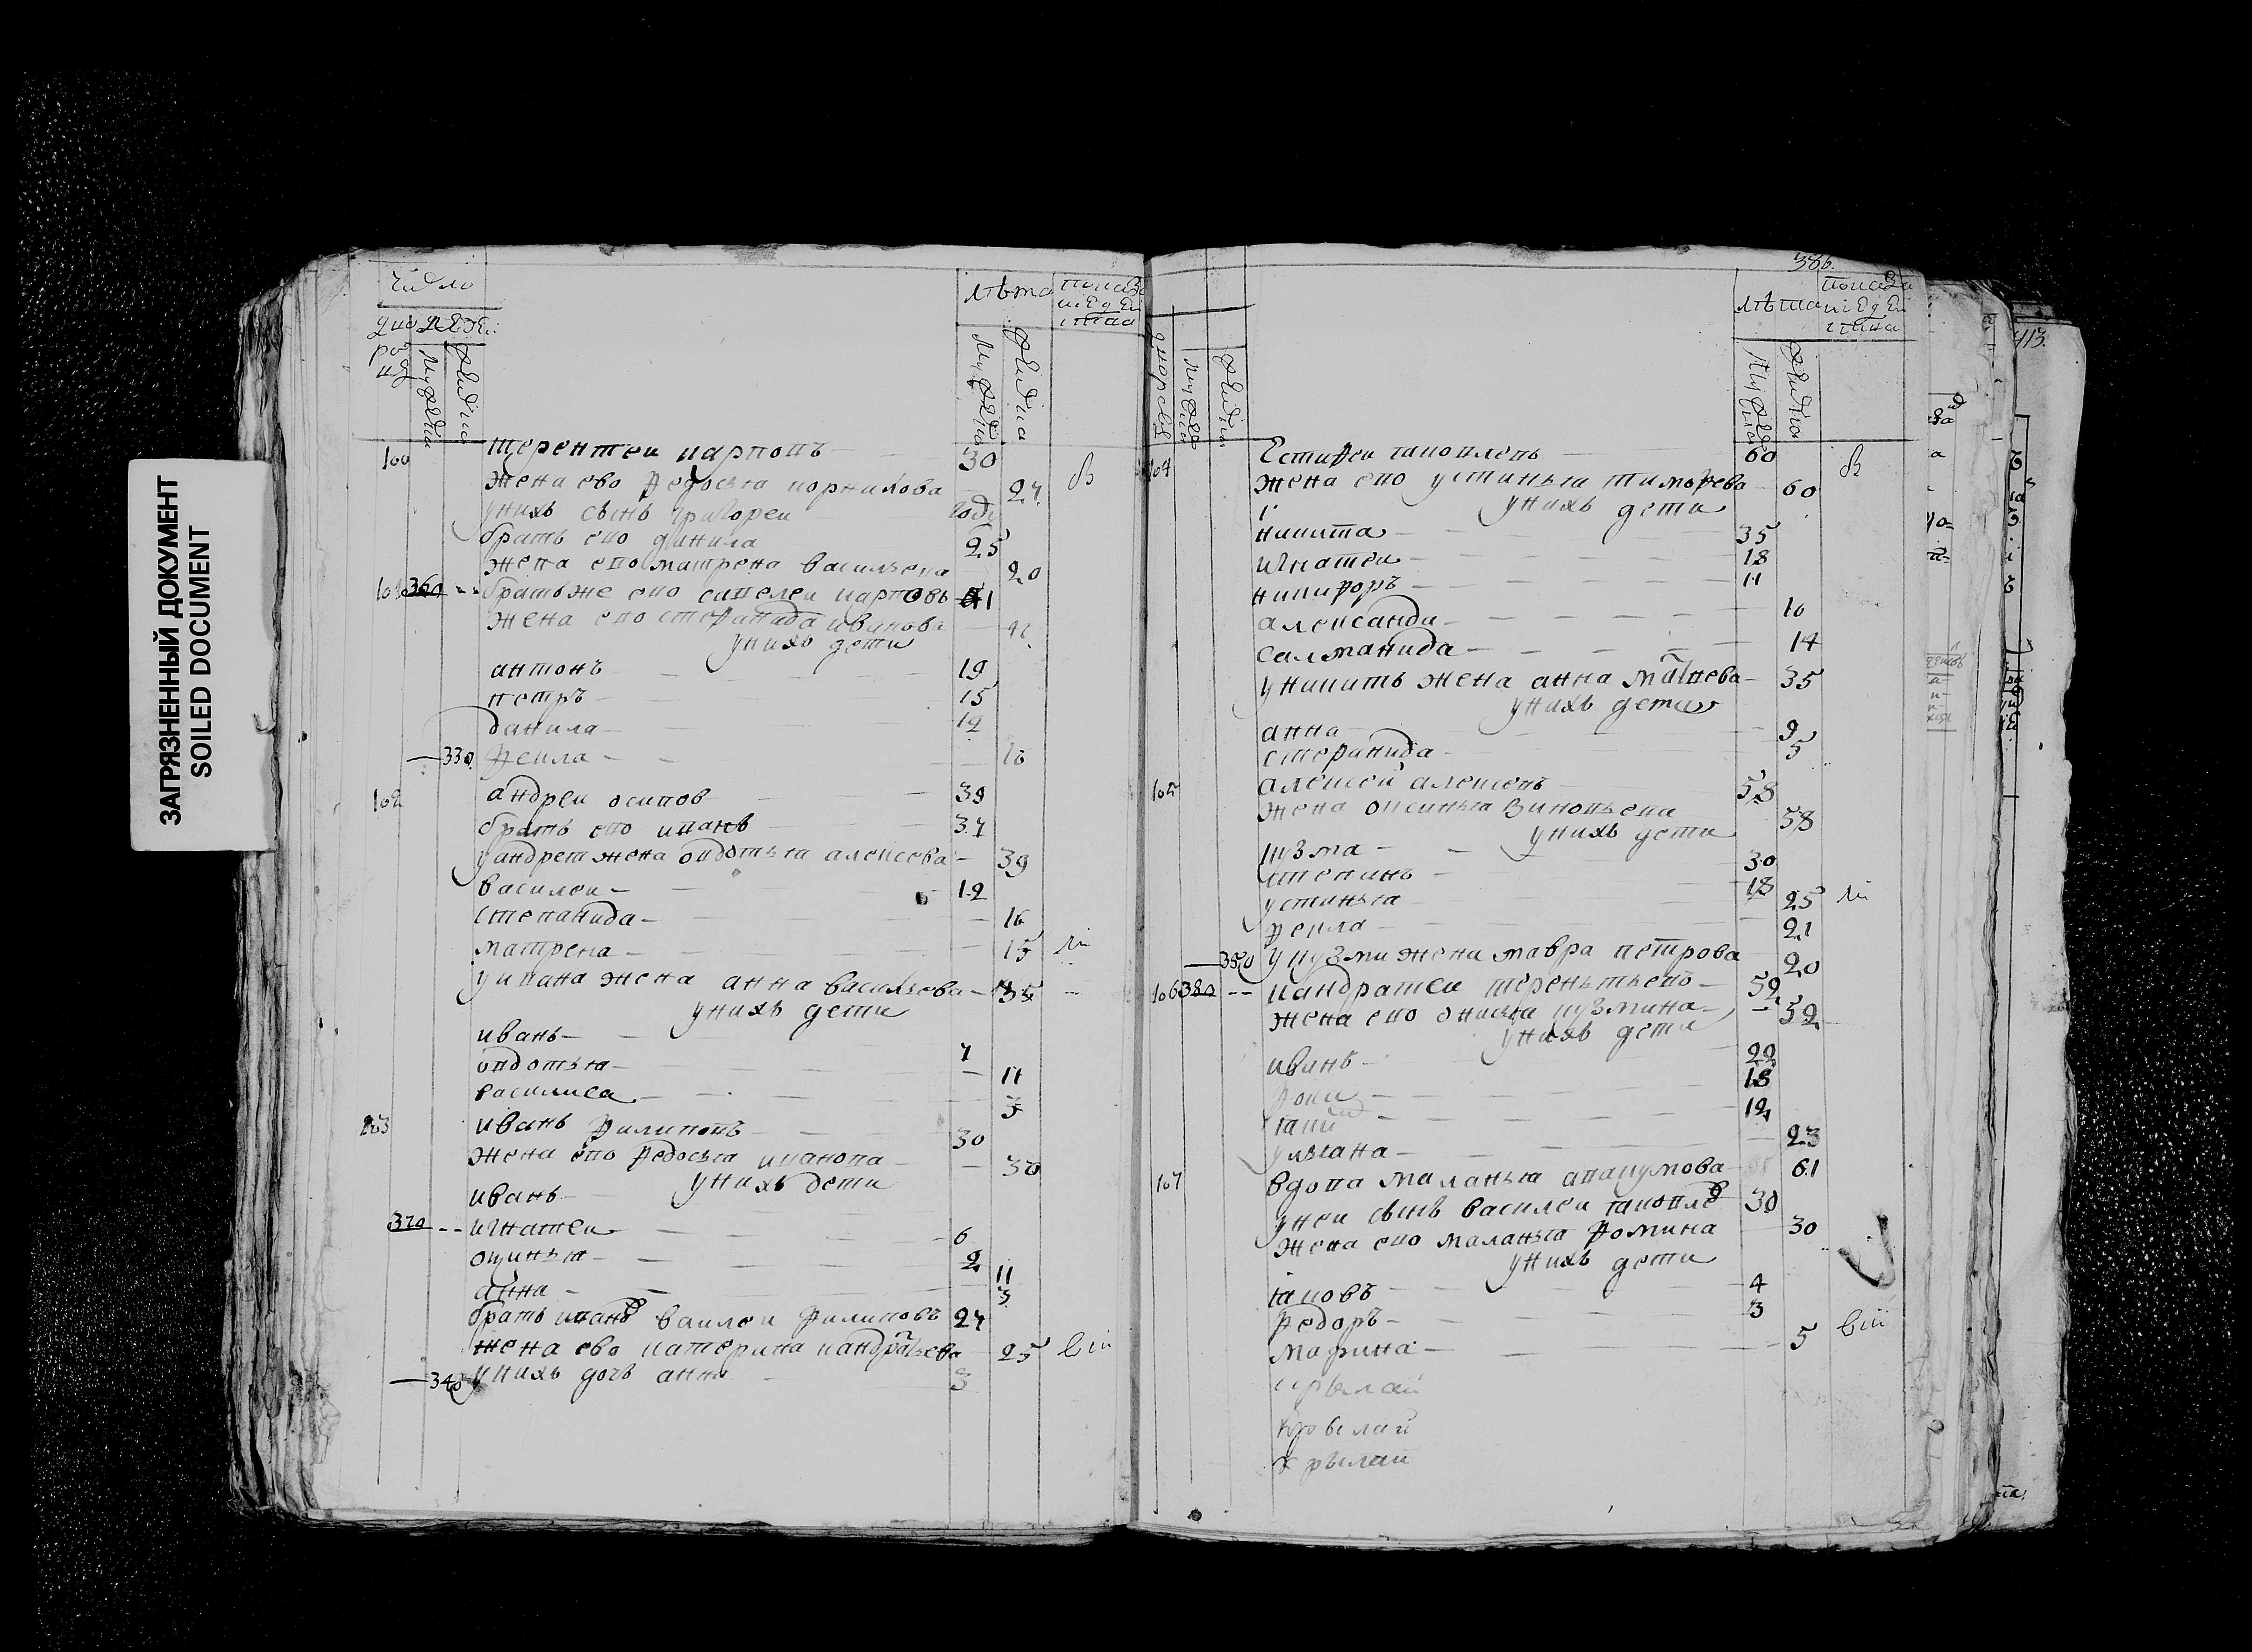 ЗАГРЯЗНЕННЫЙ ДОКУМЕНТ
SOILED DOCUMENT
число
лѣта
100 терентеи карповъ 30
жена ево федосья корнилова 27
у нихъ сынъ григореи
братъ ево данила 25
жена ево матрена васильева 20
101 360 братъ же ево савелеи карповъ 41
жена ево стефанида иванова
у нихъ дети
антонъ 19
петръ 15
данила 12
330 фекла 16
102 андреи осипов 39
братъ ево иванъ 37
у андрея жена овдотья алексеева 39
василеи 12
степанида 16
матрена 15
у ивана жена анна васильева 35
у нихъ дети
иванъ 7
овдотья 11
василиса 3
103 иванъ филиповъ 30
жена ево федосья иванова 30
у нихъ дети
иванъ
370 игнатеи 6
2
анна 11
3
братъ ивановъ василеи филиповъ 27
жена ево катерина кандратьева 25
340 у нихъ дочь анна 3
386
лѣта
104 естифеи яковлевъ 60
жена ево устинья тимофеева 60
у нихъ дети
никита 35
игнатеи 18
никифоръ 11
александа 16
салманида 14
у никиты жена анна матвеева 35
у нихъ дети
анна 9
стефанида 5
105 алексеи алексеевъ 58
жена оксинья зиновьева 58
у нихъ дети
кузма 30
18
устинья 25
фекла 21
350 у кузми жена мавра петрова 20
106 380 кандратеи терентьевъ 52
жена ево онисья кузмина 52
у нихъ дети
иванъ 22
фока 18
12
ульяна 23
107 вдова маланья авакумова 61
у неи сынъ василеи яковлевъ 30
жена ево маланья фомина 30
у нихъ дети
яковъ 4
федоръ 3
марина 5
413